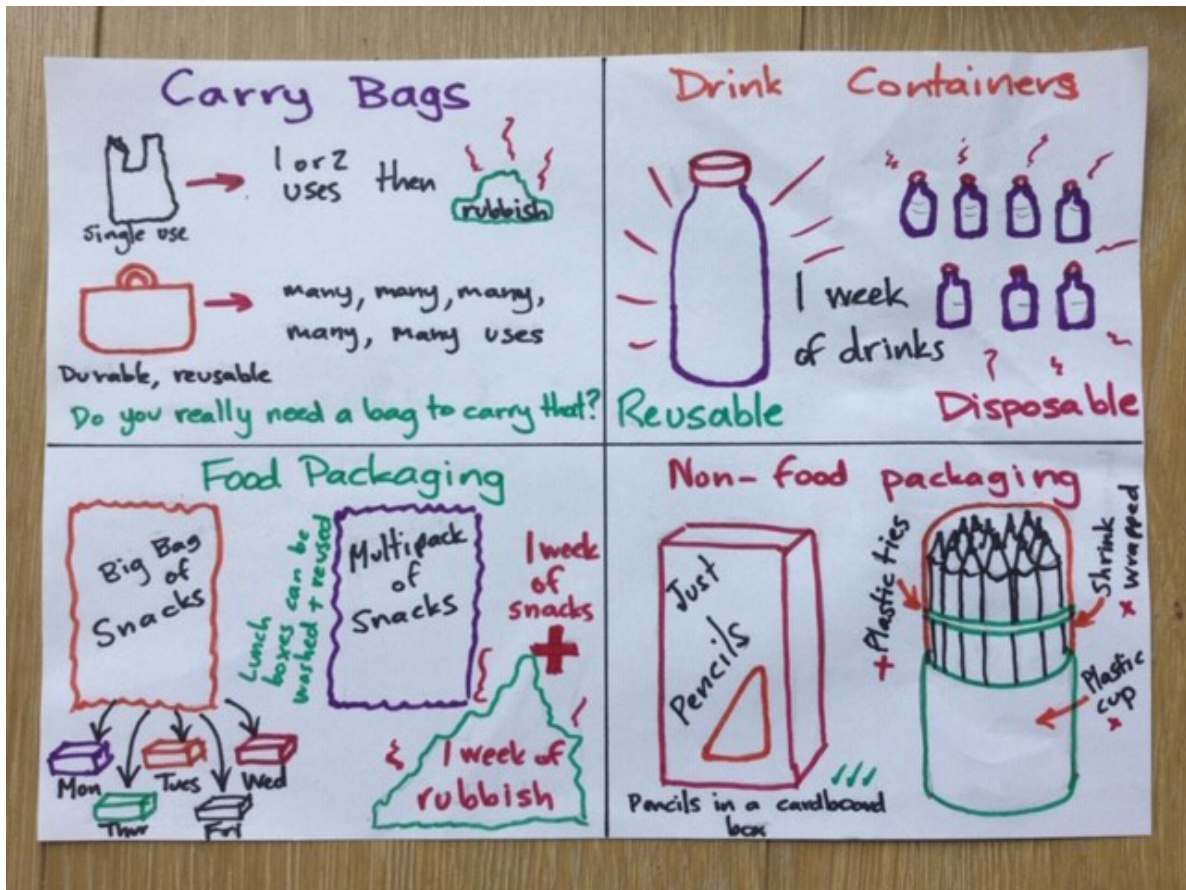 Carry Bags
1 or 2
uses
then
rubbish
Single use
many, many, many,
many, many uses
Durable, reusable
Do you really need a bag to carry that?
Drink Containers
1 week
of drinks
Reusable
Disposable
Food Packaging
Big Bag
of
Snacks
Lunch
boxes can be
washed + reused
Multipack
of
Snacks
1 week
of
snacks
+
1 week of
rubbish
Mon
Tues
Wed
Thur
Fri
Non-food packaging
Just
Pencils
Pencils in a cardboard
box
+ Plastic ties
Shrink
x wrapped
Plastic
cup
x